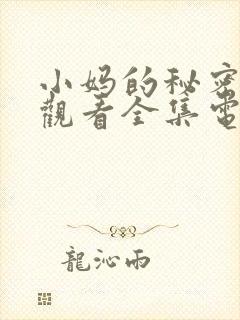 小妈的秘密
觀看全集電
龍沁雨